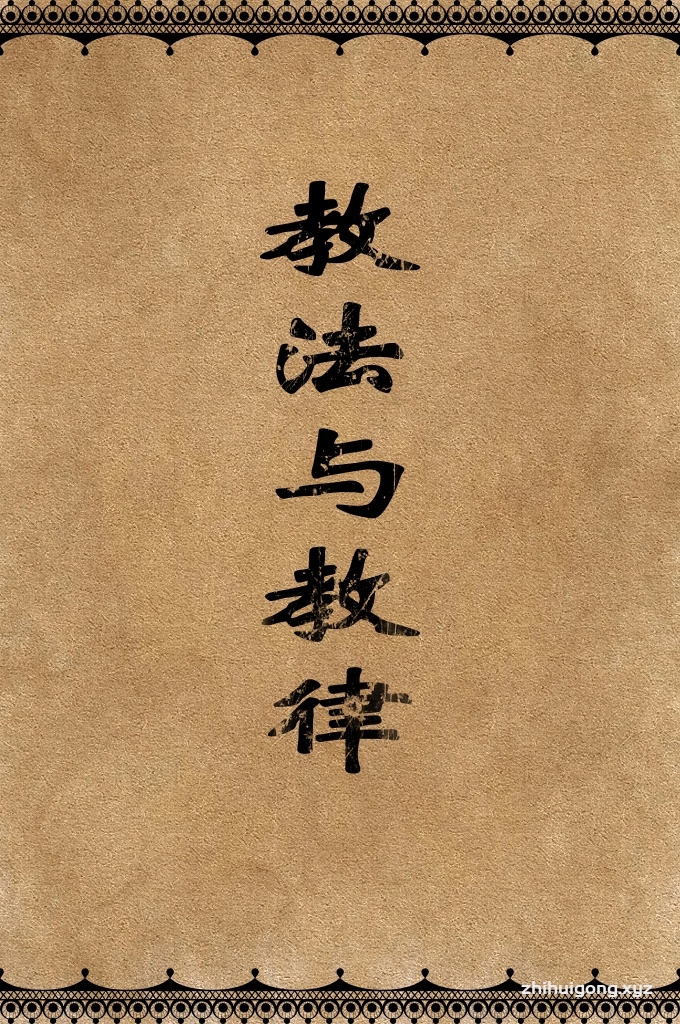 教法与教律
zhihuigong.xyz